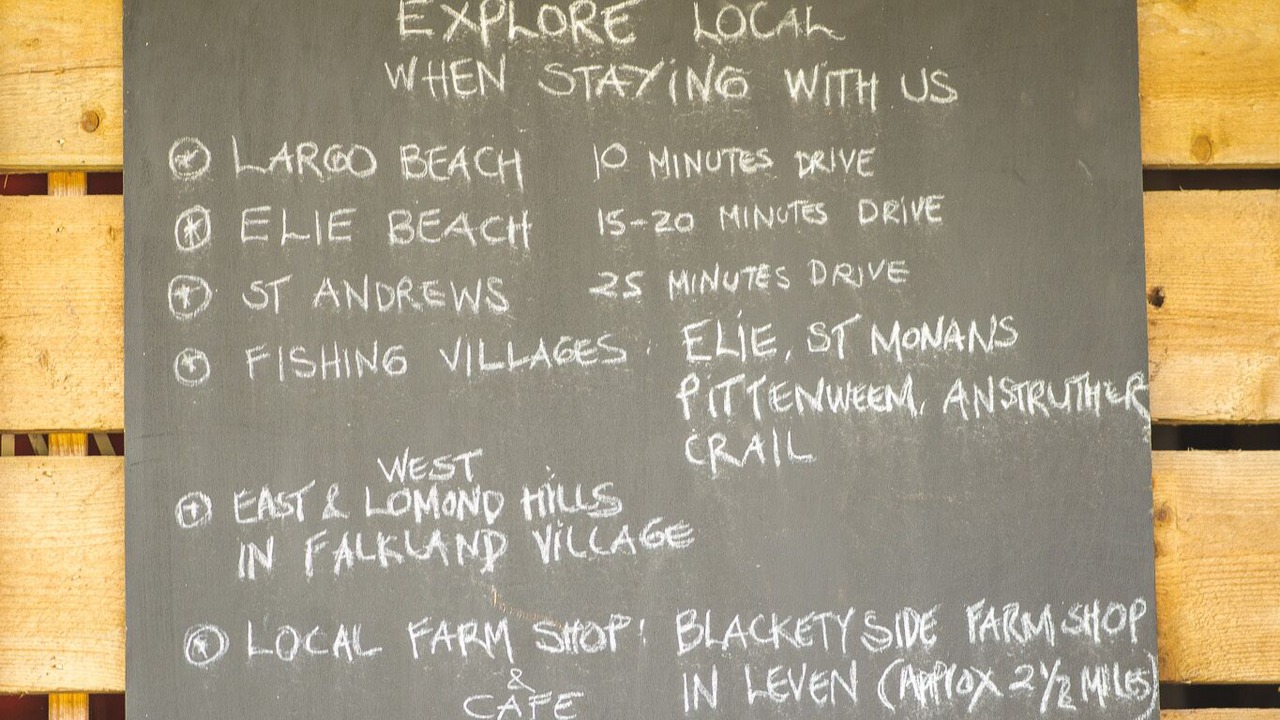 EXPLORE LOCAL
WHEN STAYING WITH US
LARGO BEACH 10 MINUTES DRIVE
ELIE BEACH 15-20 MINUTES DRIVE
ST ANDREWS 25 MINUTES DRIVE
FISHING VILLAGES: ELIE, ST MONANS
PITTENWEEM, ANSTRUTHER
CRAIL
WEST
EAST & LOMOND HILLS
IN FALKLAND VILLAGE
LOCAL FARM SHOP: BLACKETYSIDE FARM SHOP
& CAFE
IN LEVEN (APPROX 2 1/2 MILES)